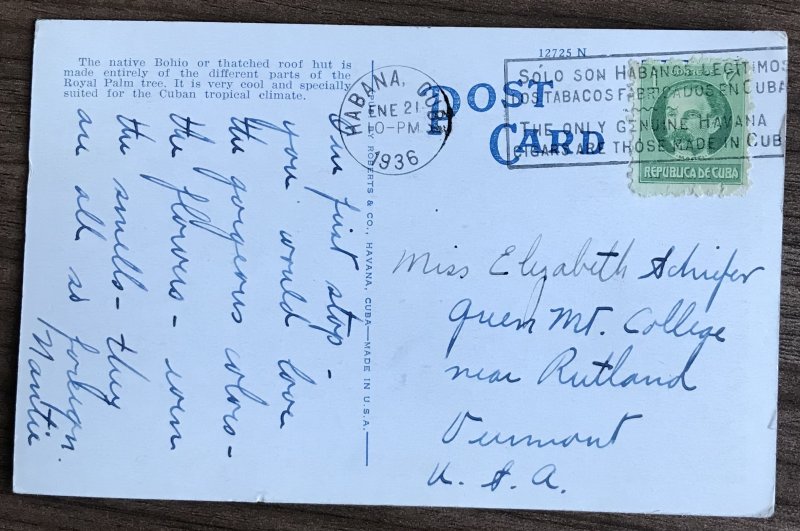 The native Bohio or thatched roof hut is
made entirely of the different parts of the
Royal Palm tree. It is very cool and specially
suited for the Cuban tropical climate.
12725 N
POST
CARD
HABANA, CUBA
ENE 21
10-PM
1936
SÓLO SON HABANOS LEGÍTIMOS
LOS TABACOS FABRICADOS EN CUBA
THE ONLY GENUINE HAVANA
CIGARS ARE THOSE MADE IN CUB
REPUBLICA DE CUBA
BY ROBERTS & CO., HAVANA, CUBA—MADE IN U.S.A.
Our first stop -
you would love
the gorgeous colors -
the flowers - even
the smells - they
are all so foreign.
Nantie
Miss Elizabeth Schiefer
Green Mt. College
near Rutland
Vermont
U. S. A.